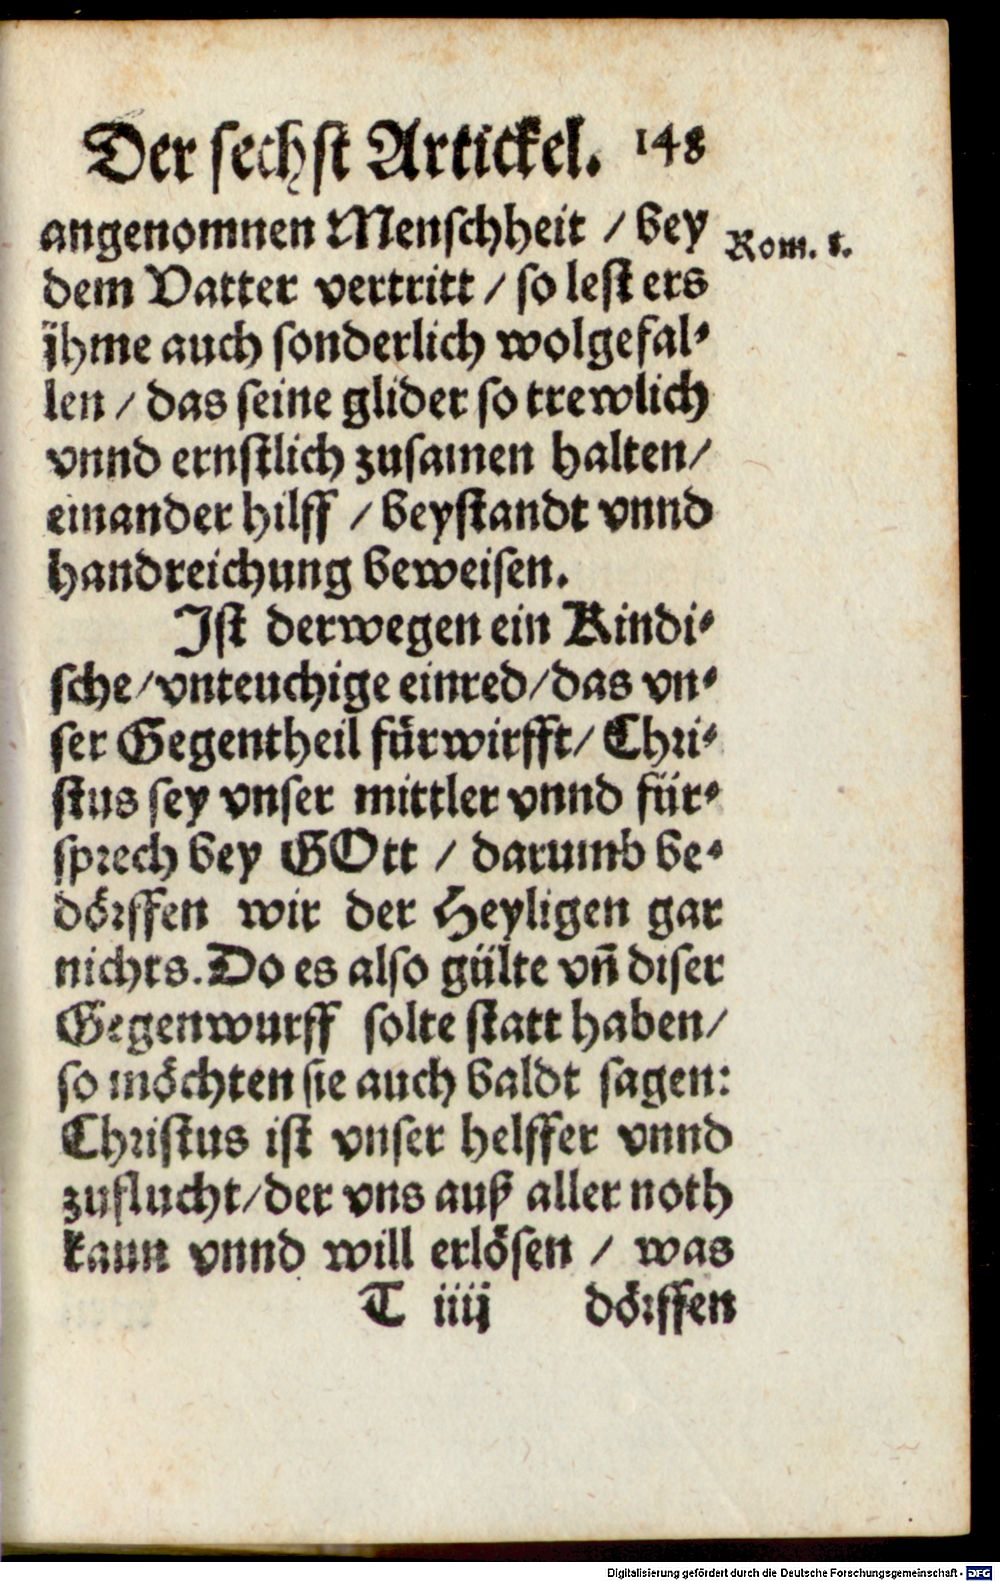 Der sechst Artickel. 148
angenomnen Menschheit / bey
Rom. 8.
dem Vatter vertritt / so lest ers
jhme auch sonderlich wolgefal-
len / das seine glider so trewlich
vnnd ernstlich zusamen halten /
einander hilff / beystandt vnnd
handreichung beweisen.
Ist derwegen ein Kindi-
sche / vnteuchige einred / das vn-
ser Gegentheil fürwirfft / Chri-
stus sey vnser mittler vnnd für-
sprech bey GOtt / darumb be-
dörffen wir der Heyligen gar
nichts. Do es also gülte vñ diser
Gegenwurff solte statt haben /
so möchten sie auch baldt sagen:
Christus ist vnser helffer vnnd
zuflucht / der vns auß aller noth
kann vnnd will erlösen / was
T iiij dörffen
Digitalisierung gefördert durch die Deutsche Forschungsgemeinschaft - DFG